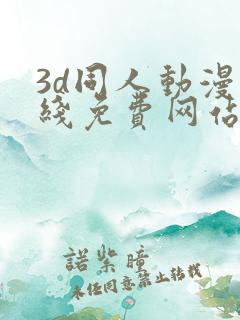 3d同人動漫
綫免費网佔
諾紫瞳
未经同意禁止转载